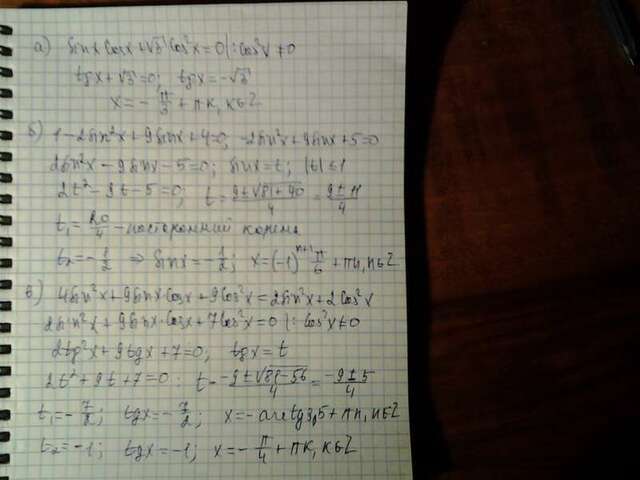 а) sinx cosx + √3 cos²x = 0 |: cos²x ≠ 0
tgx + √3 = 0; tgx = -√3
x = - π/3 + πk, k∈Z
б) 1 - 2sin²x + 9sinx + 4 = 0; -2sin²x + 9sinx + 5 = 0
2sin²x - 9sinx - 5 = 0; sinx = t; |t| ≤ 1
2t² - 9t - 5 = 0; t = (9 ± √(81 + 40))/4 = (9 ± 11)/4
t₁ = 20/4 - посторонний корень
t₂ = - 1/2 ⇒ sinx = - 1/2; x = (-1)ⁿ⁺¹ π/6 + πn, n∈Z
в) 4sin²x + 9sinx·cosx + 9cos²x = 2sin²x + 2cos²x
2sin²x + 9sinx·cosx + 7cos²x = 0 |: cos²x ≠ 0
2tg²x + 9tgx + 7 = 0; tgx = t
2t² + 9t + 7 = 0; t = (-9 ± √(81 - 56))/4 = (-9 ± 5)/4
t₁ = - 7/2; tgx = - 7/2; x = - arctg3,5 + πn, n∈Z
t₂ = -1; tgx = -1; x = - π/4 + πk, k∈Z